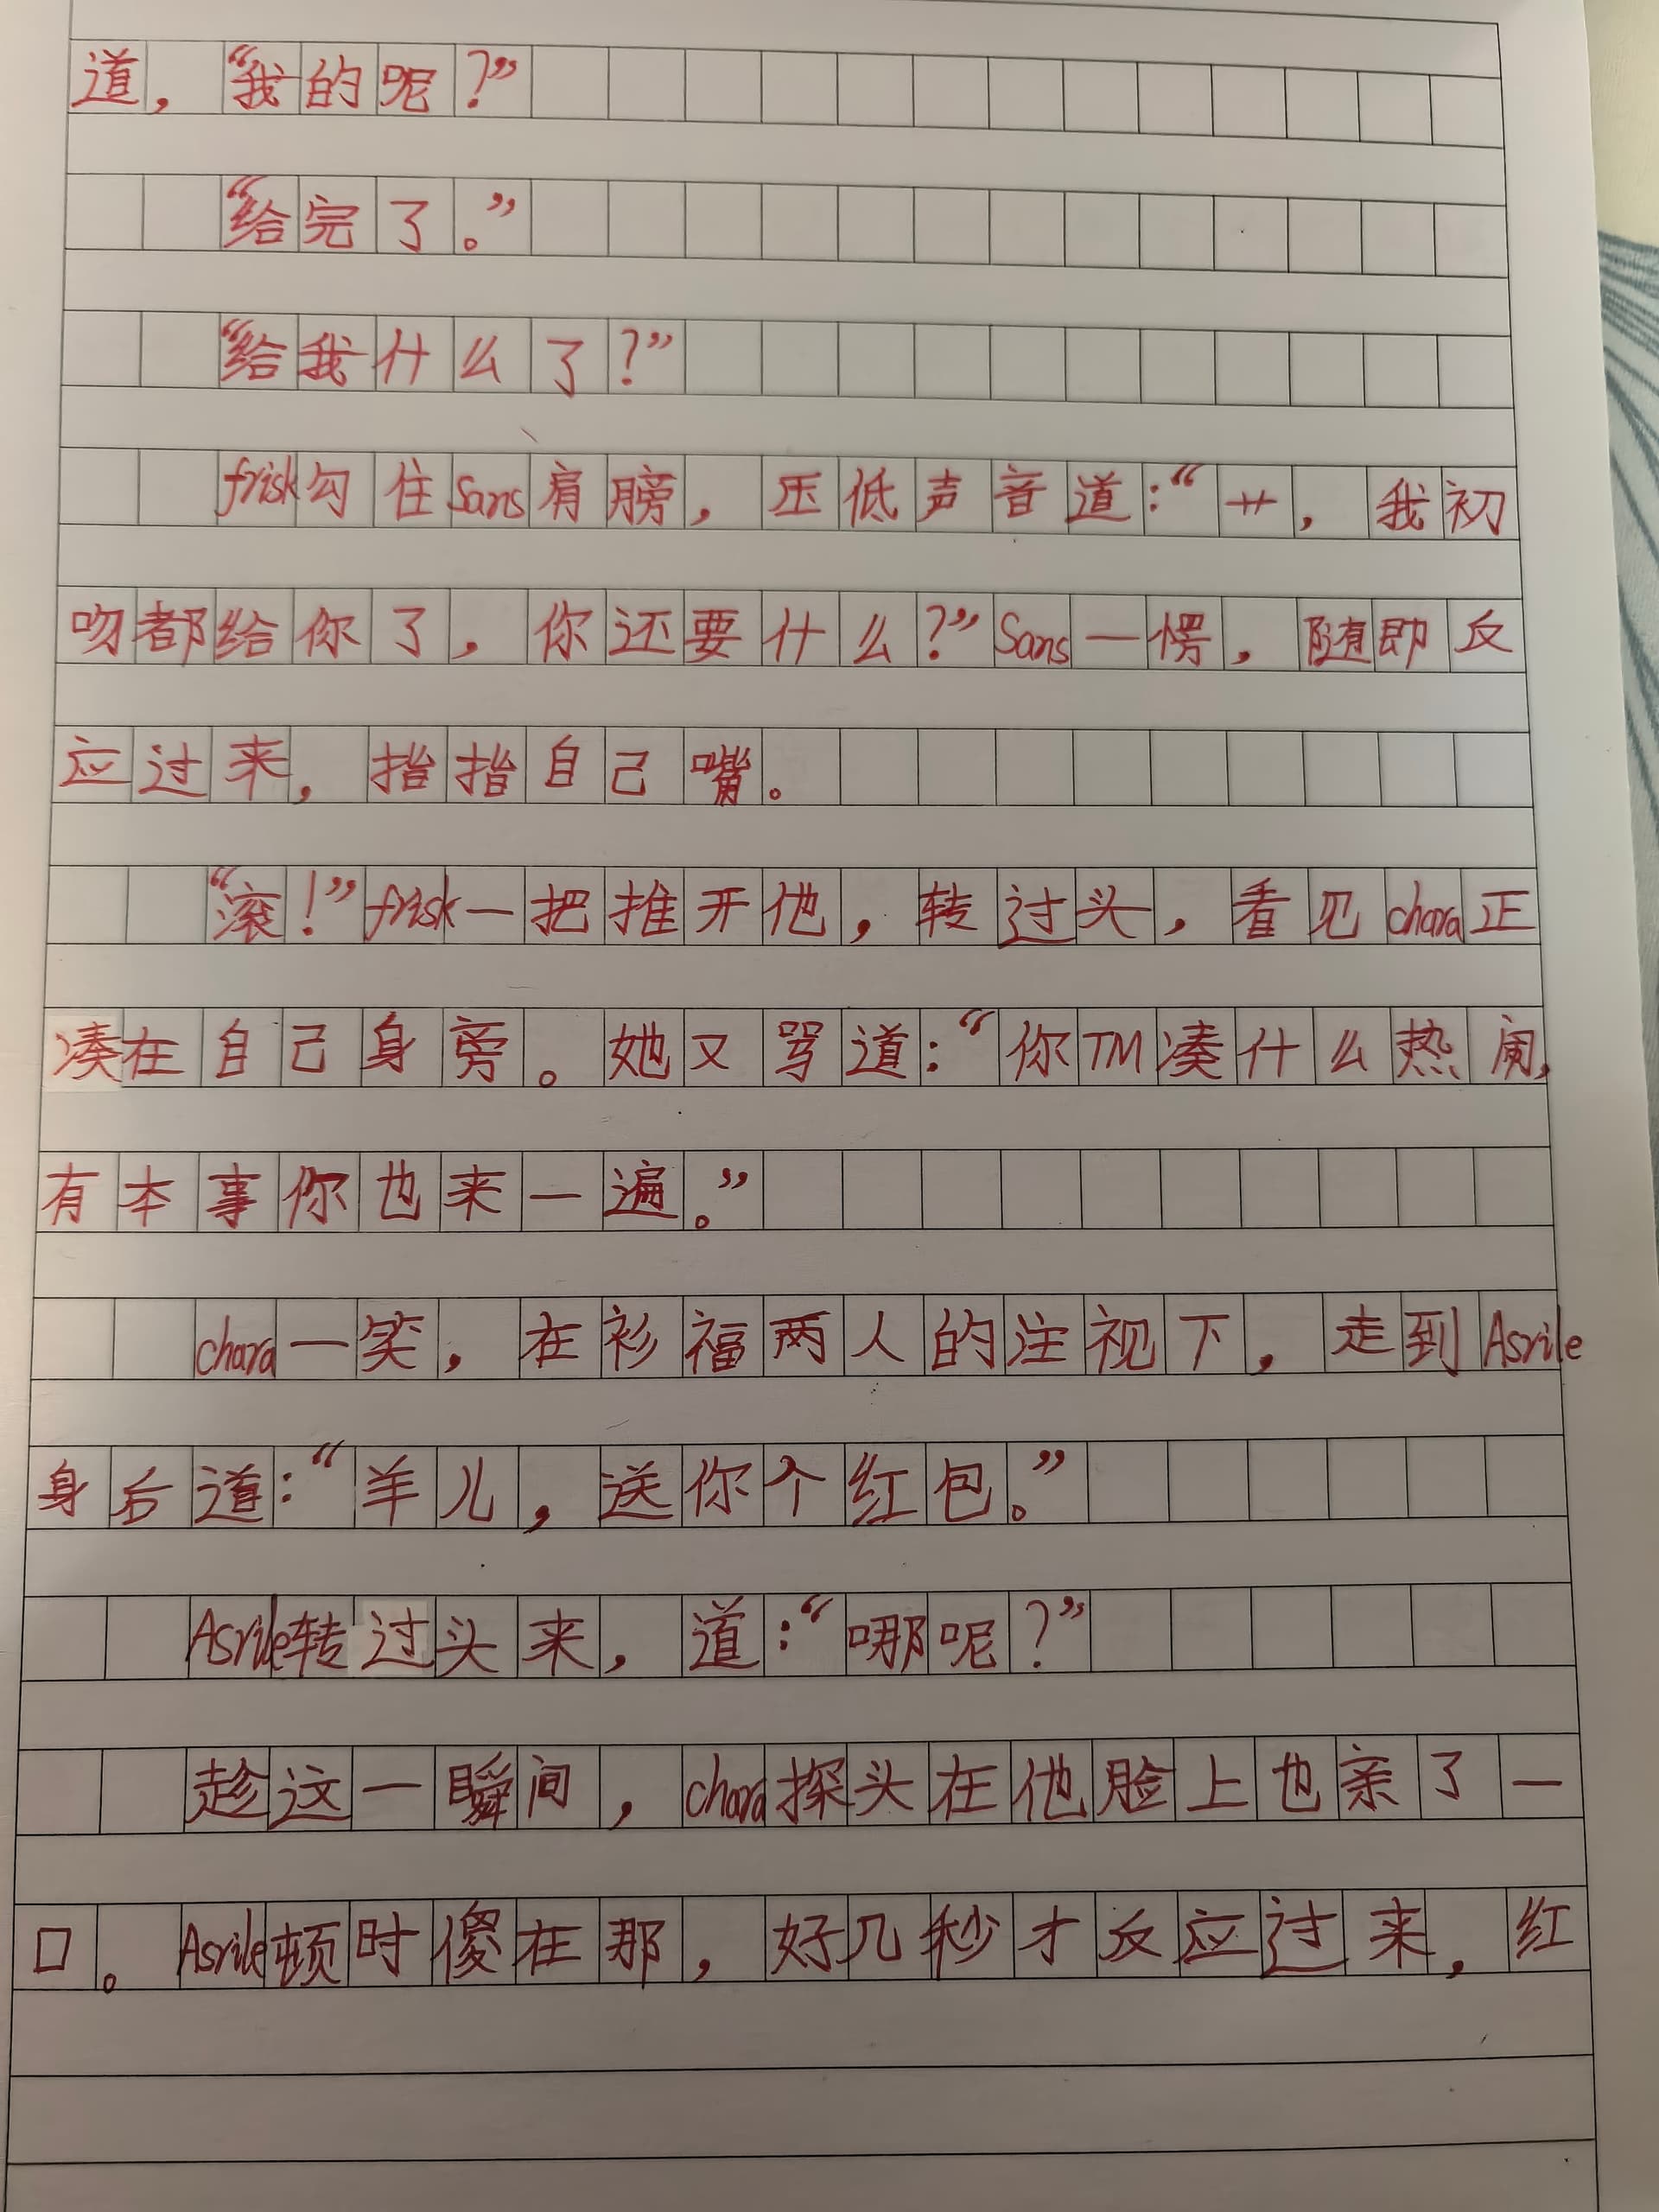 道，“我的呢？”
“给完了。”
“给我什么了？”
frisk勾住Sans肩膀，压低声音道：“艹，我初
吻都给你了，你还要什么？”Sans一愣，随即反
应过来，指指自己嘴。
“滚！”frisk一把推开他，转过头，看见chara正
凑在自己身旁。她又骂道：“你TM凑什么热闹，
有本事你也来一遍。”
chara一笑，在衫福两人的注视下，走到Asrile
身后道：“羊儿，送你个红包。”
Asrile转过头来，道：“哪呢？”
趁这一瞬间，chara探头在他脸上也亲了一
口。Asrile顿时傻在那，好几秒才反应过来，红